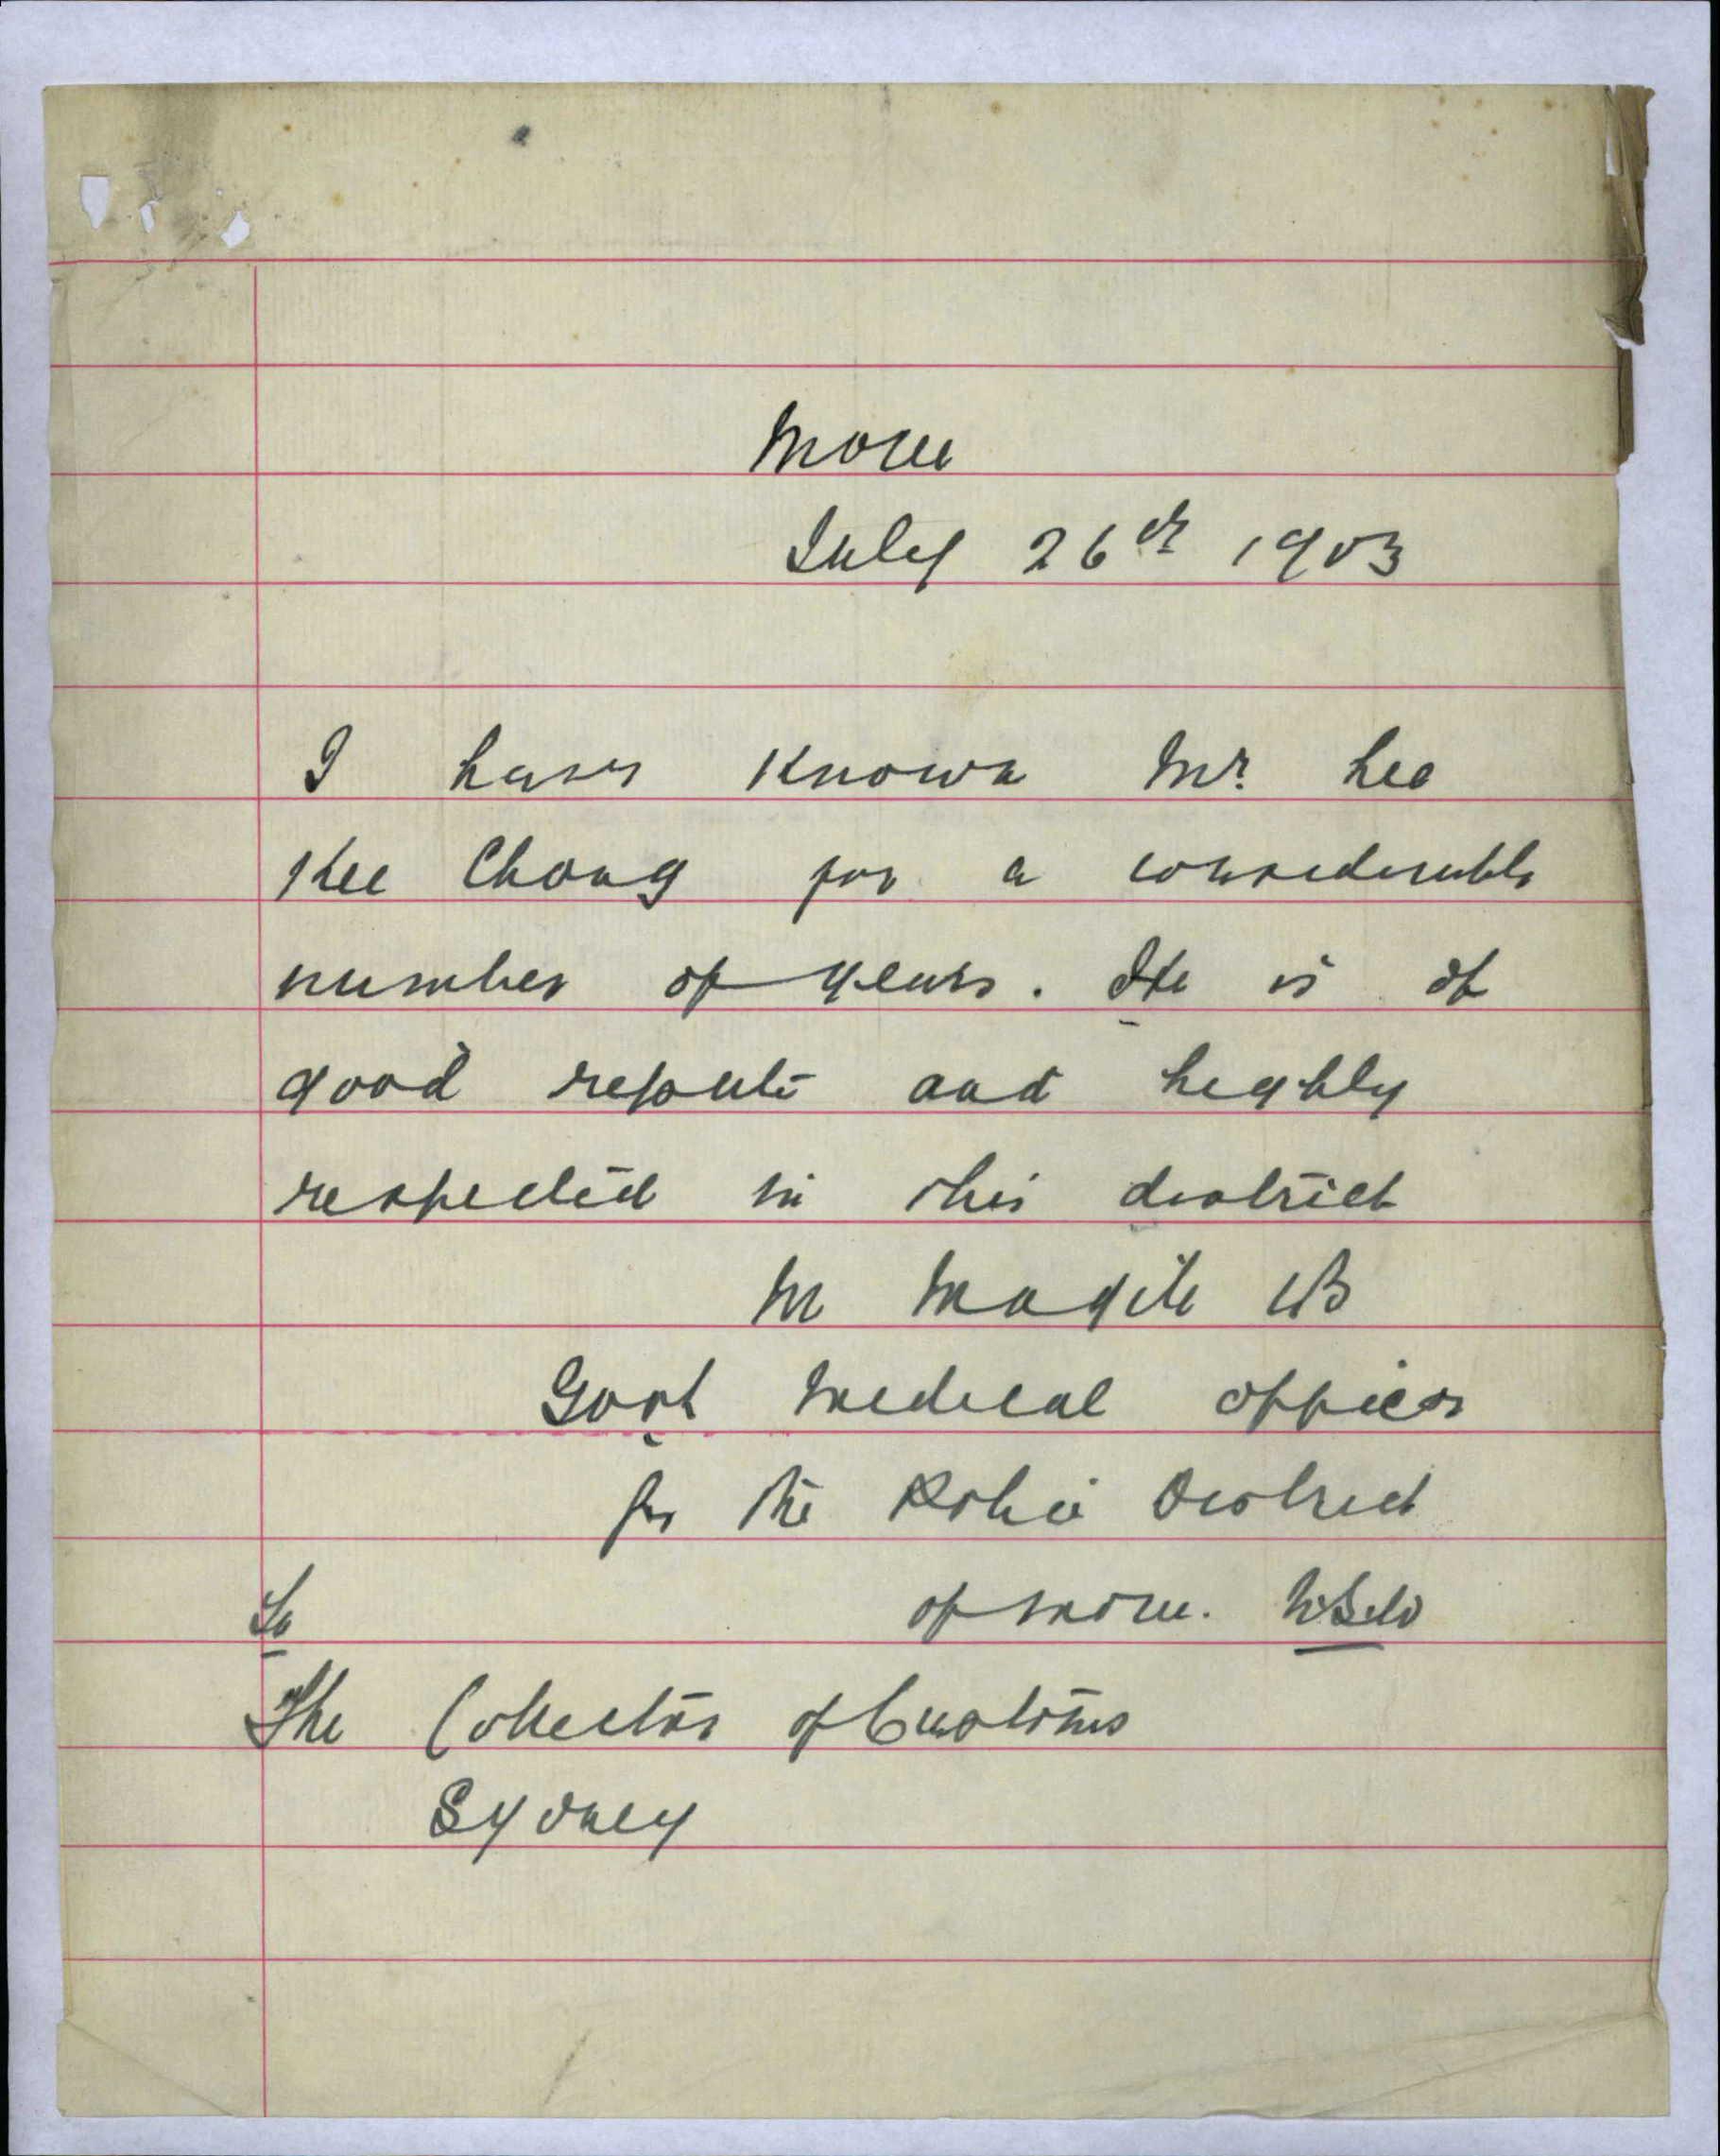 Moree
July 26th 1903
I have known Mr. Lee
Kee Chong for a considerable
number of years. He is of
good repute and highly
respected in this district
M
Govt Medical Officer
for the Police District
of Moree. NSW
To
The Collector of Customs
Sydney